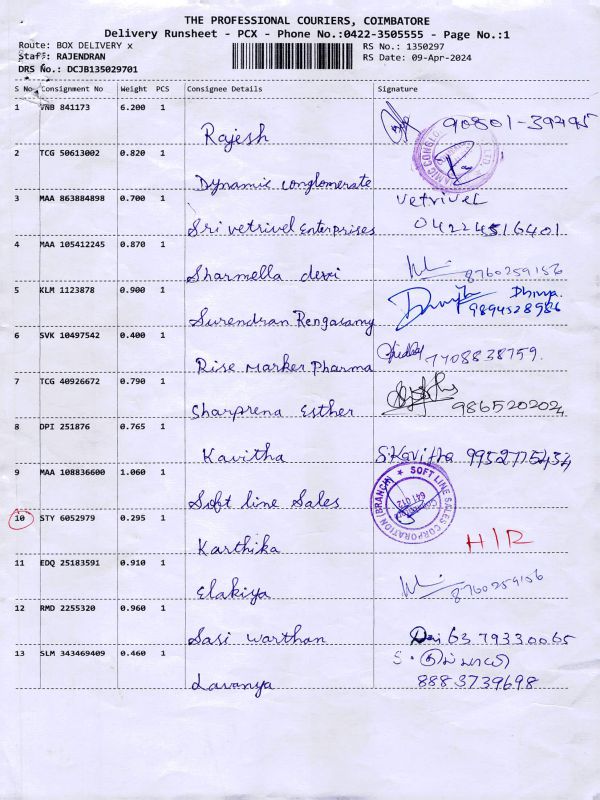 THE PROFESSIONAL COURIERS, COIMBATORE
Delivery Runsheet - PCX - Phone No.:0422-3505555 - Page No.:1
Route: BOX DELIVERY x RS No.: 1350297
Staff: RAJENDRAN RS Date: 09-Apr-2024
DRS No.: DCJB135029701
S No Consignment No Weight PCS Consignee Details Signature
1 VNB 841173 6.200 1
Rajesh 90801-39795
2 TCG 50613002 0.820 1
Dynamic conglomerate
3 MAA 863884898 0.700 1 Vetrivel
Sri vetrivel Enterprises 04224516401
4 MAA 105412245 0.870 1
Sharmella devi 8760259156
5 KLM 1123878 0.900 1 Dhivya.
Surendran Rengasamy 9894528986
6 SVK 10497542 0.400 1
Rise Marker Pharma 7708838759.
7 TCG 40926672 0.790 1
Sharprena Esther 986520202
8 DPI 251876 0.765 1
Kavitha S.Kavitha 9952775434
9 MAA 108836600 1.060 1
Soft line Sales
SOFT LINE SALES CORPORATION (BRANCH)
641 012
10 STY 6052979 0.295 1
Karthika H/R
11 EDQ 25183591 0.910 1
Elakiya 8760259156
12 RMD 2255320 0.960 1
Sasi warthan 6379330065
13 SLM 343469409 0.460 1
Lavanya 8883739698